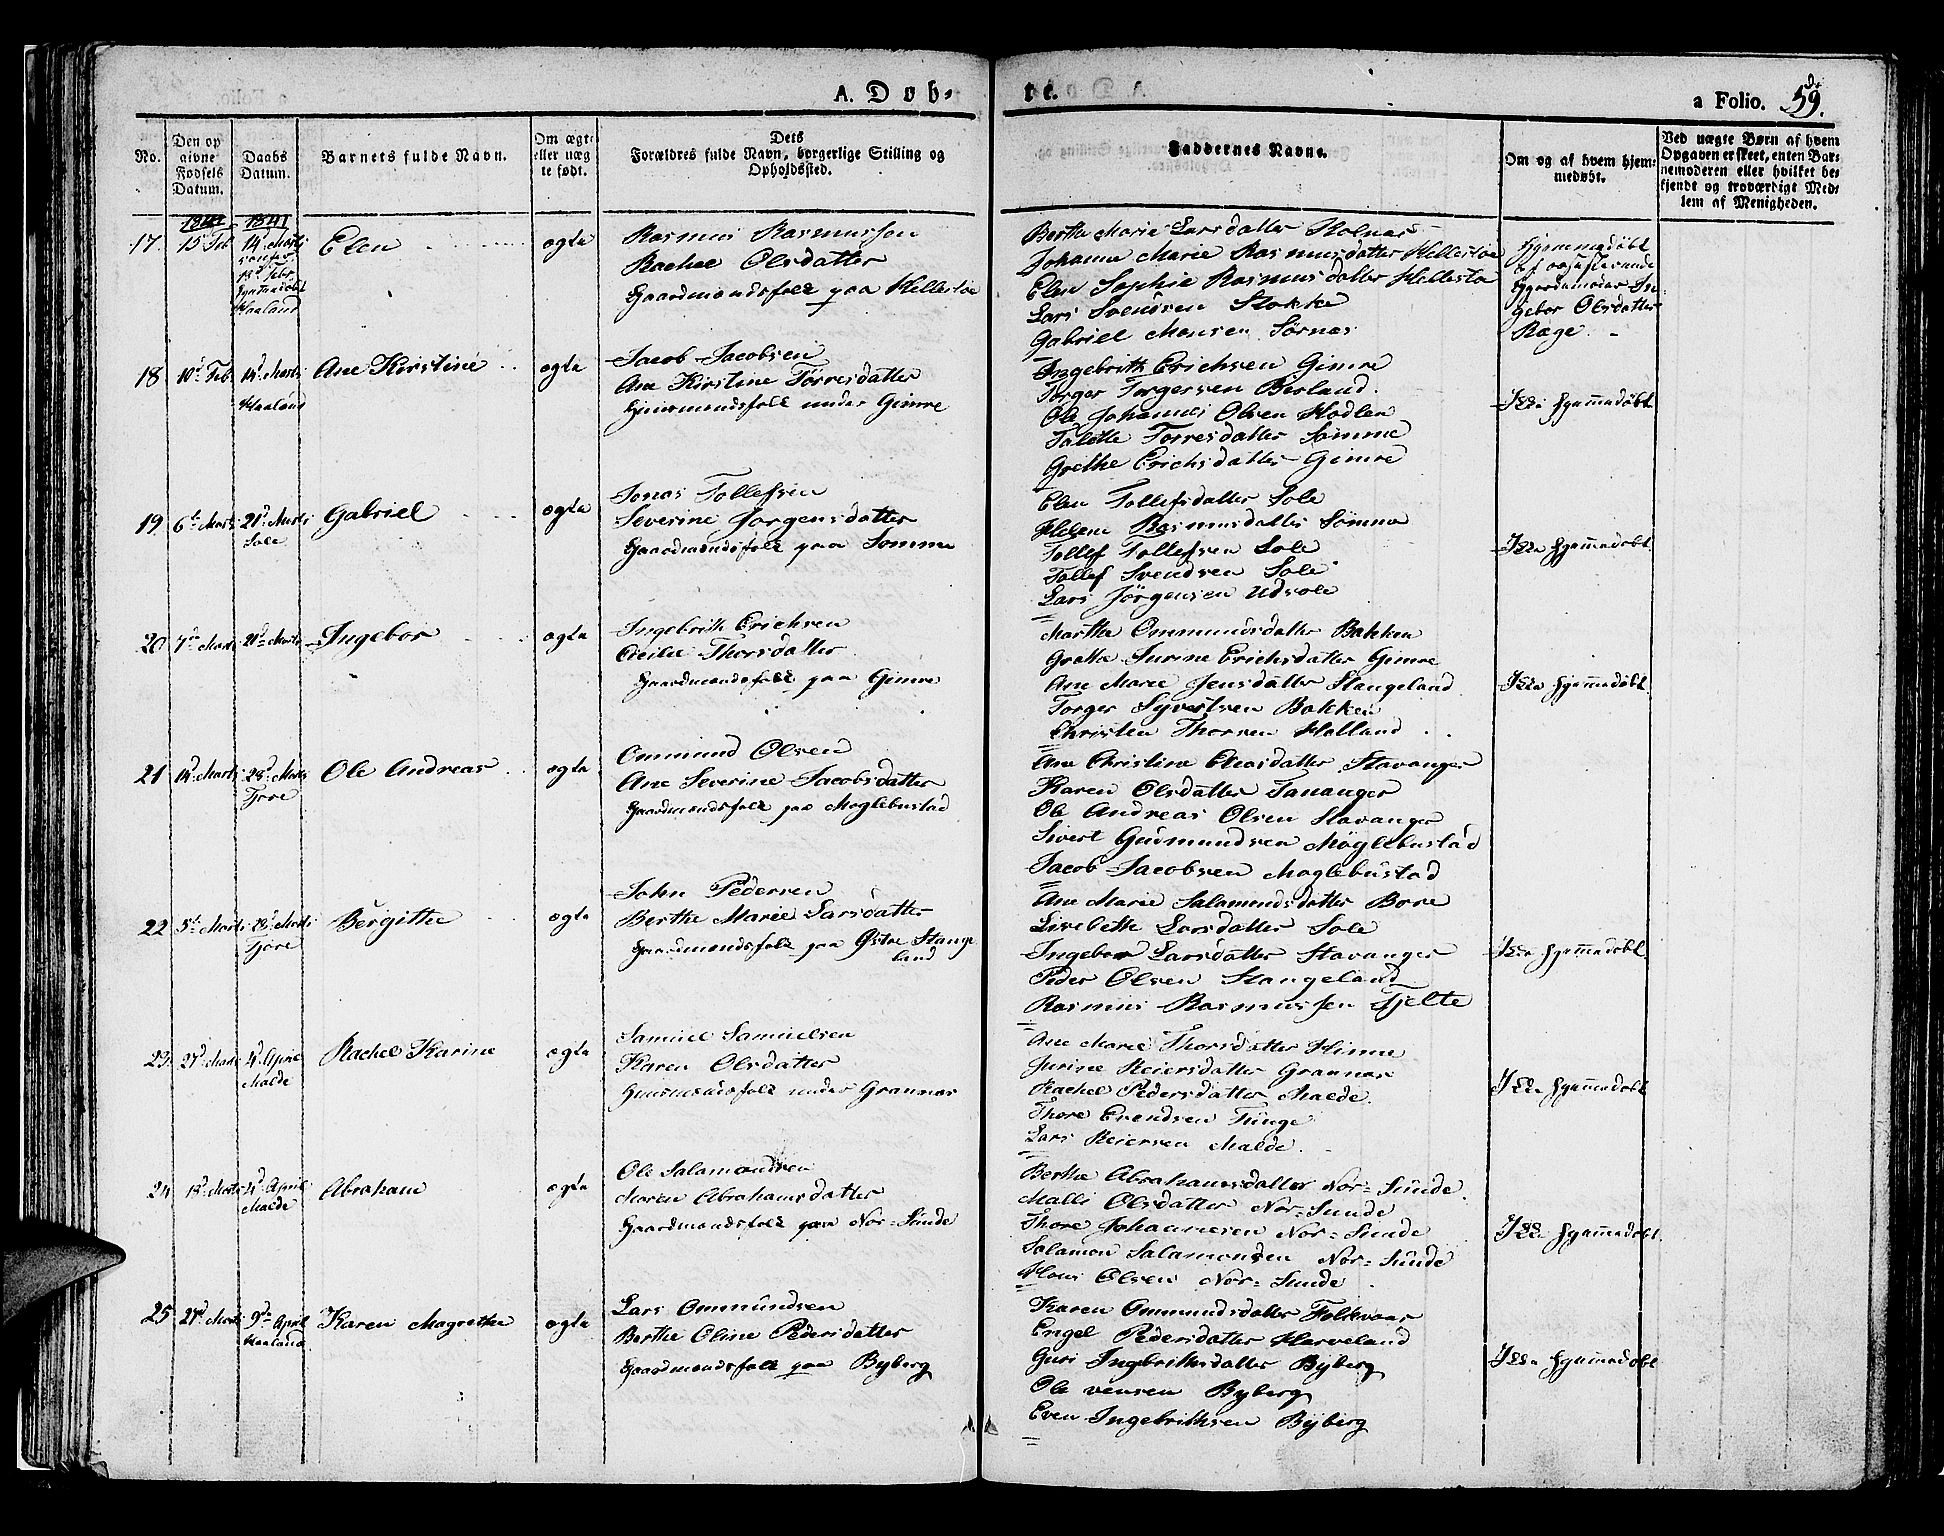 A. Døb-
te.
a Folio. 59.
No.
Den op
givne
Fødsels
Datum.
Daabs
Datum.
Barnets fulde Navn.
Om ægte
eller uæg
te født.
Dets
Forældres fulde Navn, borgerlige Stilling og
Opholdssted.
Faddernes Navne.
Om og af hvem hjem-
medøbt.
Ved uægte Børn af hvem
Opgaven er skeet, enten Bar-
nemoderen eller hvilket be-
kjendt og troværdigt Med-
lem af Menigheden.
1841 1841
17. 15 Feb 14 Marts
Haaland
Elen
ægte
Rasmus Rasmussen
Rachel Olsdatter
Gaardmandsfolk paa Hellestøe
Berthe Marie Larsdatter
Johanne Marie Rasmusdatter Hellestøe
Elen Sophie Rasmusdatter Hellestøe
Lars Svendsen Stokke
Gabriel Monsen Sørnes
Hjemmedøbt
af
Gjordemoder In-
gebor Olsdatter
Ræge
18 10d Feb. 14d Marts
Haaland
Ane Kirstine
ægte
Jacob Jacobsen
Ane Kirstine Tørresdatter
Huusmandsfolk under Gimre
Ingebrith Erichsen Gimre
Torger Torgersen
Ole Johannes Olsen Hodlen
Talette Torresdatter Sømme
Grethe Erichsdatter Gimre
Ikke hjemmedøbt
19 6te Marts 21d Marts
Sole
Gabriel
ægte
Jonas Tollefsen
Severine Jørgensdatter
Gaardmandsfolk paa Sømme
Elen Tollefsdatter Sole
Helene Rasmusdatter Sømme
Tollef Tollefsen Sole
Tollef Svendsen Sole
Lars Jørgensen Udsole
Ikke hjemmedøbt
20 7de Marts 21d Marts
Ingebor
ægte
Ingebrith Erichsen
Cecilie Thorsdatter
Gaardmandsfolk paa Gimre
Marthe Ommundsdatter Bakken
Grethe Surine Erichsdatter Gimre
Ane Marie Jensdatter Stangeland
Torger Syvertsen Bakken
Christen Thorsen Holland
Ikke hjemmedøbt
21 14d Marts 28d Marts
Tjore
Ole Andreas
ægte
Ommund Olsen
Ane Severine Jacobsdatter
Gaardmandsfolk paa Møglebustad
Ane Christine Stavanger
Karen Olsdatter Tananger
Ole Andreas Olsen Stavanger
Sivert Gudmundsen Møglebustad
Jacob Jacobsen Møglebustad
22 5te Marts 28d Marts
Tjore
Bergitha
ægte
John Pedersen
Berthe Marie Larsdatter
Gaardmandsfolk paa Østre Stange
land
Ane Marie Salamonsdatter Bore
Lisebeth Larsdatter Sole
Ingebor Larsdatter Stavanger
Peder Olsen Stangeland
Rasmus Rasmussen Tjelte
Ikke hjemmedøbt
23. 27d Marts 4d April
Malde
Rachel Karine
ægte
Samuel Samuelsen
Karen Olsdatter
Huusmandsfolk under Grannæs
Ane Marie Thorsdatter Hinne
Jurine Reiersdatter Grannæs
Rachel Pedersdatter Malde.
Thore Evendsen Tunge
Lars Reiersen Malde.
Ikke hjemmedøbt
24 13d Marts 4d April
Malde
Abraham
ægte
Ole Salamonsen
Maren Abrahamsdatter
Gaardmandsfolk paa Nor=Sunde
Berthe Abrahamsdatter Nor=Sunde
Malli Olsdatter Nor=Sunde
Thore Johannesen Nor=Sunde
Salamon Salamonsen Nor=Sunde
Olsen Nor=Sunde
Ikke hjemmedøbt.
25 27d Marts 9de April
Haaland
Karen Magrethe
ægte
Lars Ommundsen
Berthe Oline Pedersdatter
Gaardmandsfolk paa Byberg
Karen Ommundsdatter Folkvoer
Engel Pedersdatter Harveland
Guri Ingebrithsdatter Byberg
Ole Byberg
Even Ingebrithsen Byberg
Ikke hjemmedøbt